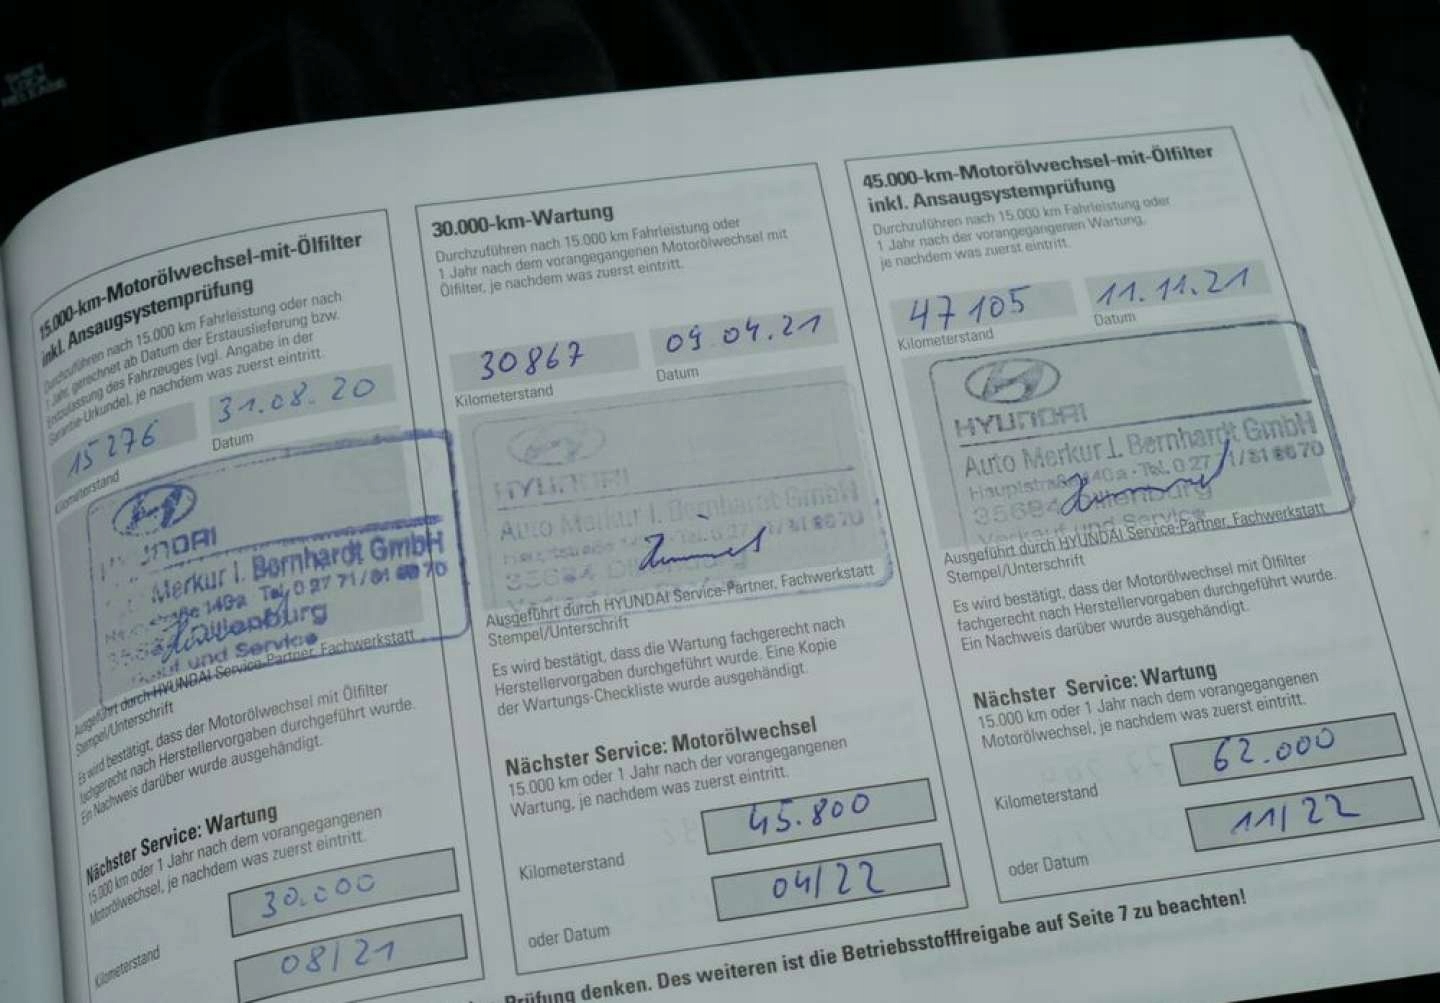 SHIFT
LOCK
RELEASE
15.000-km-Motorölwechsel-mit-Ölfilter
inkl. Ansaugsystemprüfung
Durchzuführen nach 15.000 km Fahrleistung oder nach
1 Jahr, gerechnet ab Datum der Erstauslieferung bzw.
Erstzulassung des Fahrzeuges (vgl. Angabe in der
Garantie-Urkunde), je nachdem was zuerst eintritt.
15276 31.08.20
Kilometerstand Datum
HYUNDAI
Merkur I. Bernhardt GmbH
140a Tel. 0 27 71/81 88 70
Dillenburg
und Service
Ausgeführt durch HYUNDAI Service-Partner, Fachwerkstatt
Stempel/Unterschrift
Es wird bestätigt, dass der Motorölwechsel mit Ölfilter
fachgerecht nach Herstellervorgaben durchgeführt wurde.
Ein Nachweis darüber wurde ausgehändigt.
Nächster Service: Wartung
15.000 km oder 1 Jahr nach dem vorangegangenen
Motorölwechsel, je nachdem was zuerst eintritt.
30.000
Kilometerstand
08/21
30.000-km-Wartung
Durchzuführen nach 15.000 km Fahrleistung oder
1 Jahr nach dem vorangegangenen Motorölwechsel mit
Ölfilter, je nachdem was zuerst eintritt.
30867 09 04.21
Kilometerstand Datum
HYUNDAI
Auto Merkur I. Bernhardt GmbH
Hauptstraße 140a Tel. 0 27 71/81 88 70
35684 Dillenburg
Ausgeführt durch HYUNDAI Service-Partner, Fachwerkstatt
Stempel/Unterschrift
Es wird bestätigt, dass die Wartung fachgerecht nach
Herstellervorgaben durchgeführt wurde. Eine Kopie
der Wartungs-Checkliste wurde ausgehändigt.
Nächster Service: Motorölwechsel
15.000 km oder 1 Jahr nach der vorangegangenen
Wartung, je nachdem was zuerst eintritt.
45.800
Kilometerstand
04/22
oder Datum
45.000-km-Motorölwechsel-mit-Ölfilter
inkl. Ansaugsystemprüfung
Durchzuführen nach 15.000 km Fahrleistung oder
1 Jahr nach der vorangegangenen Wartung,
je nachdem was zuerst eintritt.
47105 11.11.21
Kilometerstand Datum
HYUNDAI
Auto Merkur I. Bernhardt GmbH
Hauptstraße 140a · Tel. 0 27 71/81 88 70
35684 Dillenburg
Verkauf und Service
Ausgeführt durch HYUNDAI Service-Partner, Fachwerkstatt
Stempel/Unterschrift
Es wird bestätigt, dass der Motorölwechsel mit Ölfilter
fachgerecht nach Herstellervorgaben durchgeführt wurde.
Ein Nachweis darüber wurde ausgehändigt.
Nächster Service: Wartung
15.000 km oder 1 Jahr nach dem vorangegangenen
Motorölwechsel, je nachdem was zuerst eintritt.
62.000
Kilometerstand
11/22
oder Datum
Prüfung denken. Des weiteren ist die Betriebsstofffreigabe auf Seite 7 zu beachten!